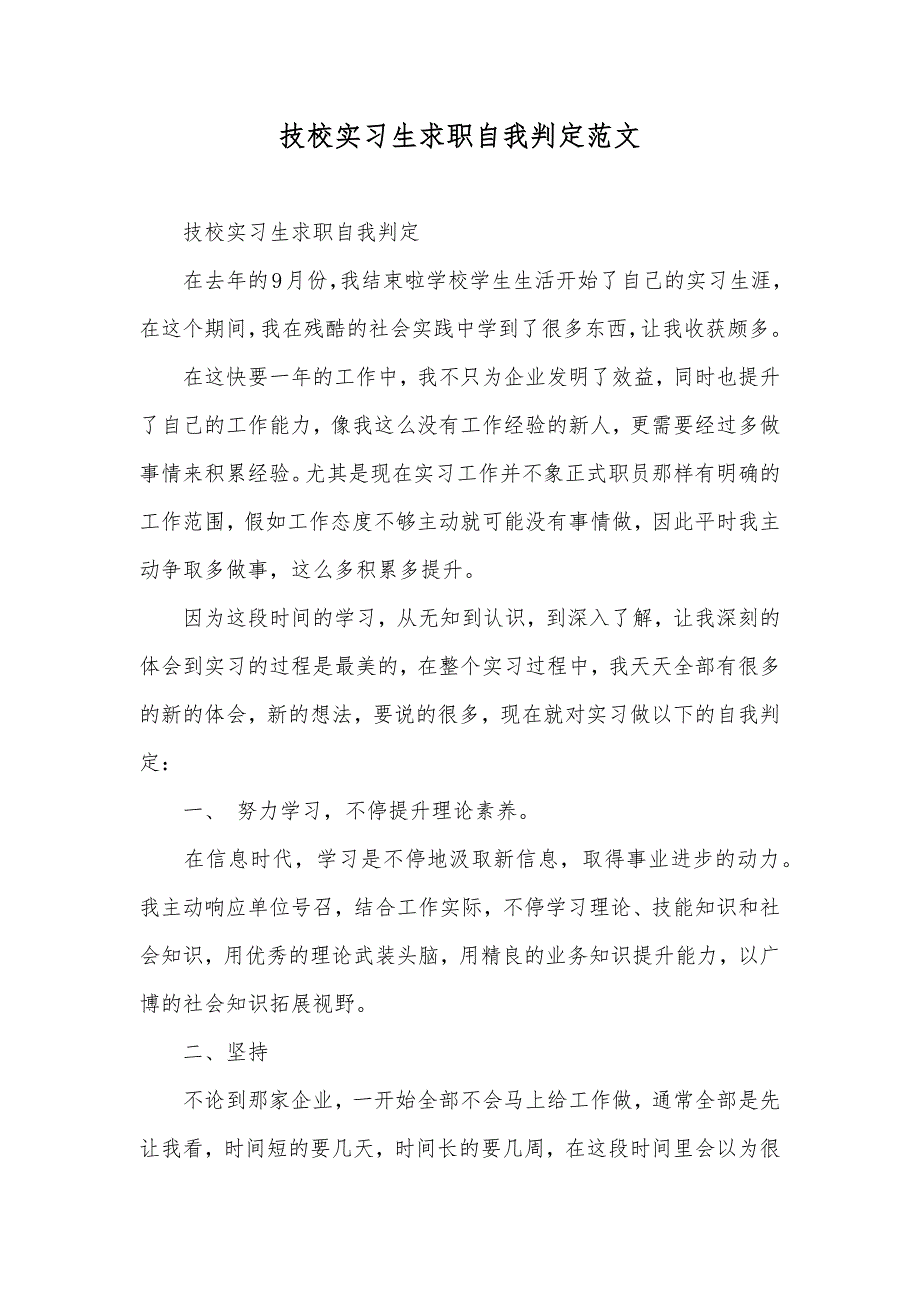 技校实习生求职自我判定范文
技校实习生求职自我判定
在去年的9月份，我结束啦学校学生生活开始了自己的实习生涯，
在这个期间，我在残酷的社会实践中学到了很多东西，让我收获颇多。
在这快要一年的工作中，我不只为企业发明了效益，同时也提升
了自己的工作能力，像我这么没有工作经验的新人，更需要经过多做
事情来积累经验。尤其是现在实习工作并不象正式职员那样有明确的
工作范围，假如工作态度不够主动就可能没有事情做，因此平时我主
动争取多做事，这么多积累多提升。
因为这段时间的学习，从无知到认识，到深入了解，让我深刻的
体会到实习的过程是最美的，在整个实习过程中，我天天全部有很多
的新的体会，新的想法，要说的很多，现在就对实习做以下的自我判
定：
一、 努力学习，不停提升理论素养。
在信息时代，学习是不停地汲取新信息，取得事业进步的动力。
我主动响应单位号召，结合工作实际，不停学习理论、技能知识和社
会知识，用优秀的理论武装头脑，用精良的业务知识提升能力，以广
博的社会知识拓展视野。
二、坚持
不论到那家企业，一开始全部不会马上给工作做，通常全部是先
让我看，时间短的要几天，时间长的要几周，在这段时间里会以为很